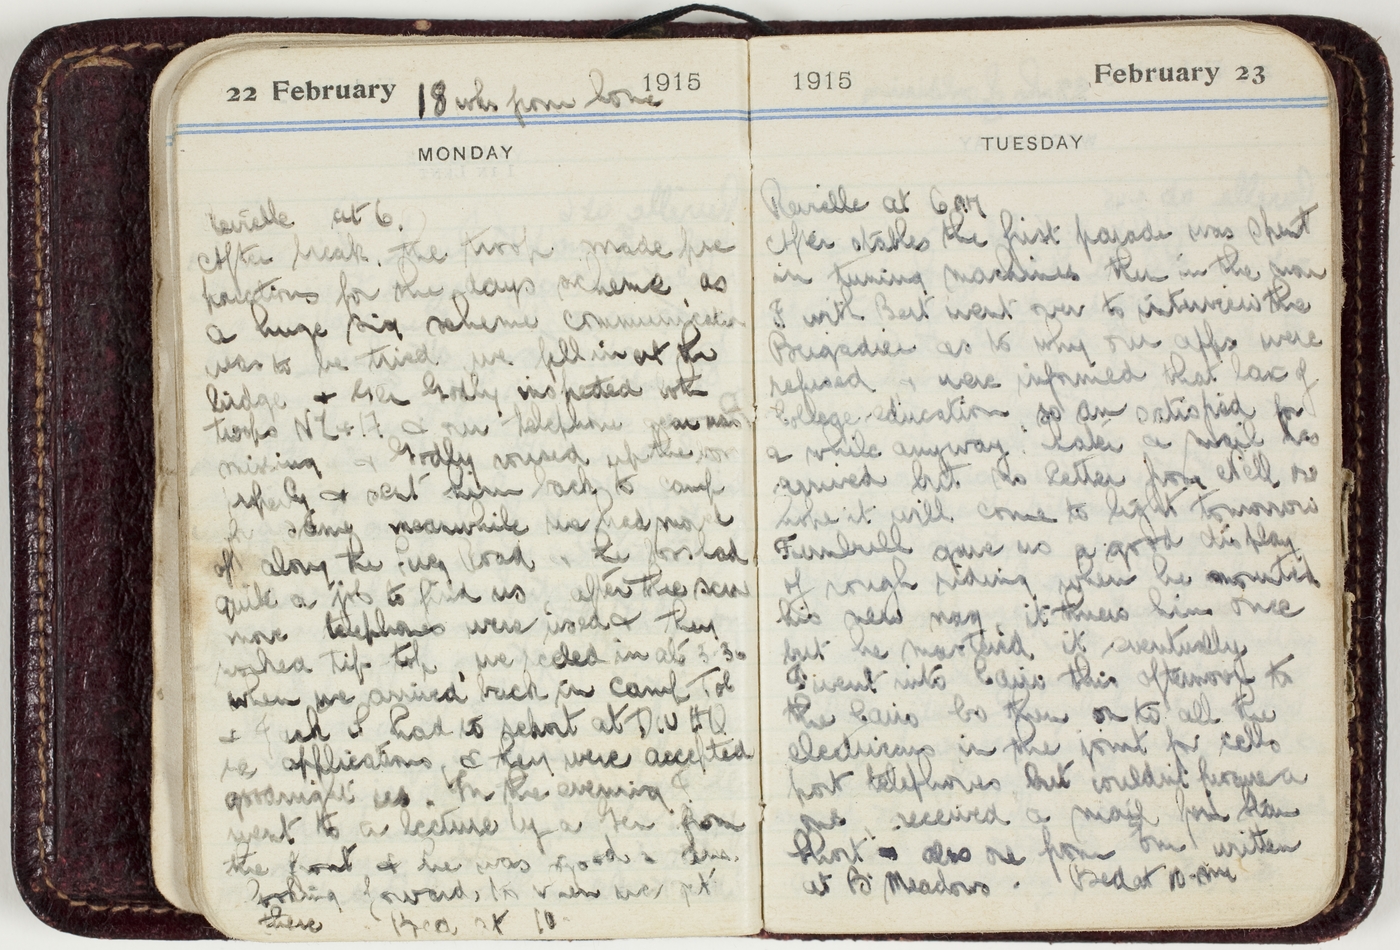 22 February 18 wks from home 1915
MONDAY
Reveille at 6.
After break. the troop made pre
parations for the days scheme, as
a huge sig scheme communication
was to be tried we fell in at the
bridge & Gen Godly inspected both
troops NZ & & our telephone gear was
missing & Godly roused up the
& sent him back to camp
for same meanwhile we had moved
off along the Suez Road & he had
quite a job to find us, after this
more telephones were used & they
worked tip top, we in at 3.30
when we arrived back in camp Tol
& & I had to report at Div HQ
re applications, & they were accepted
In the evening I
went to a lecture by a Gen from
the front & he was good & am
looking forward to when we get
there Bed at 10.
1915 February 23
TUESDAY
Reveille at 6 am
After stables the first parade was spent
in tuning machines then in the morn
I with Bert went over to interview the
Brigadier as to why our apps were
refused & were informed that lax of
College education, so am satisfied for
a while anyway. Later a mail has
arrived but no letter from Nell so
hope it will come to light tomorrow
gave us a good display
of rough riding when he mounted
his new nag, it threw him once
but he mastered it eventually
I went into Cairo this afternoon to
the Cairo Co then on to all the
electricians in the joint for cells
port telephones but couldn't procure a
one, received a mail from Stan
Short & also one from Tom written
at B. Meadows. Bed at 10.